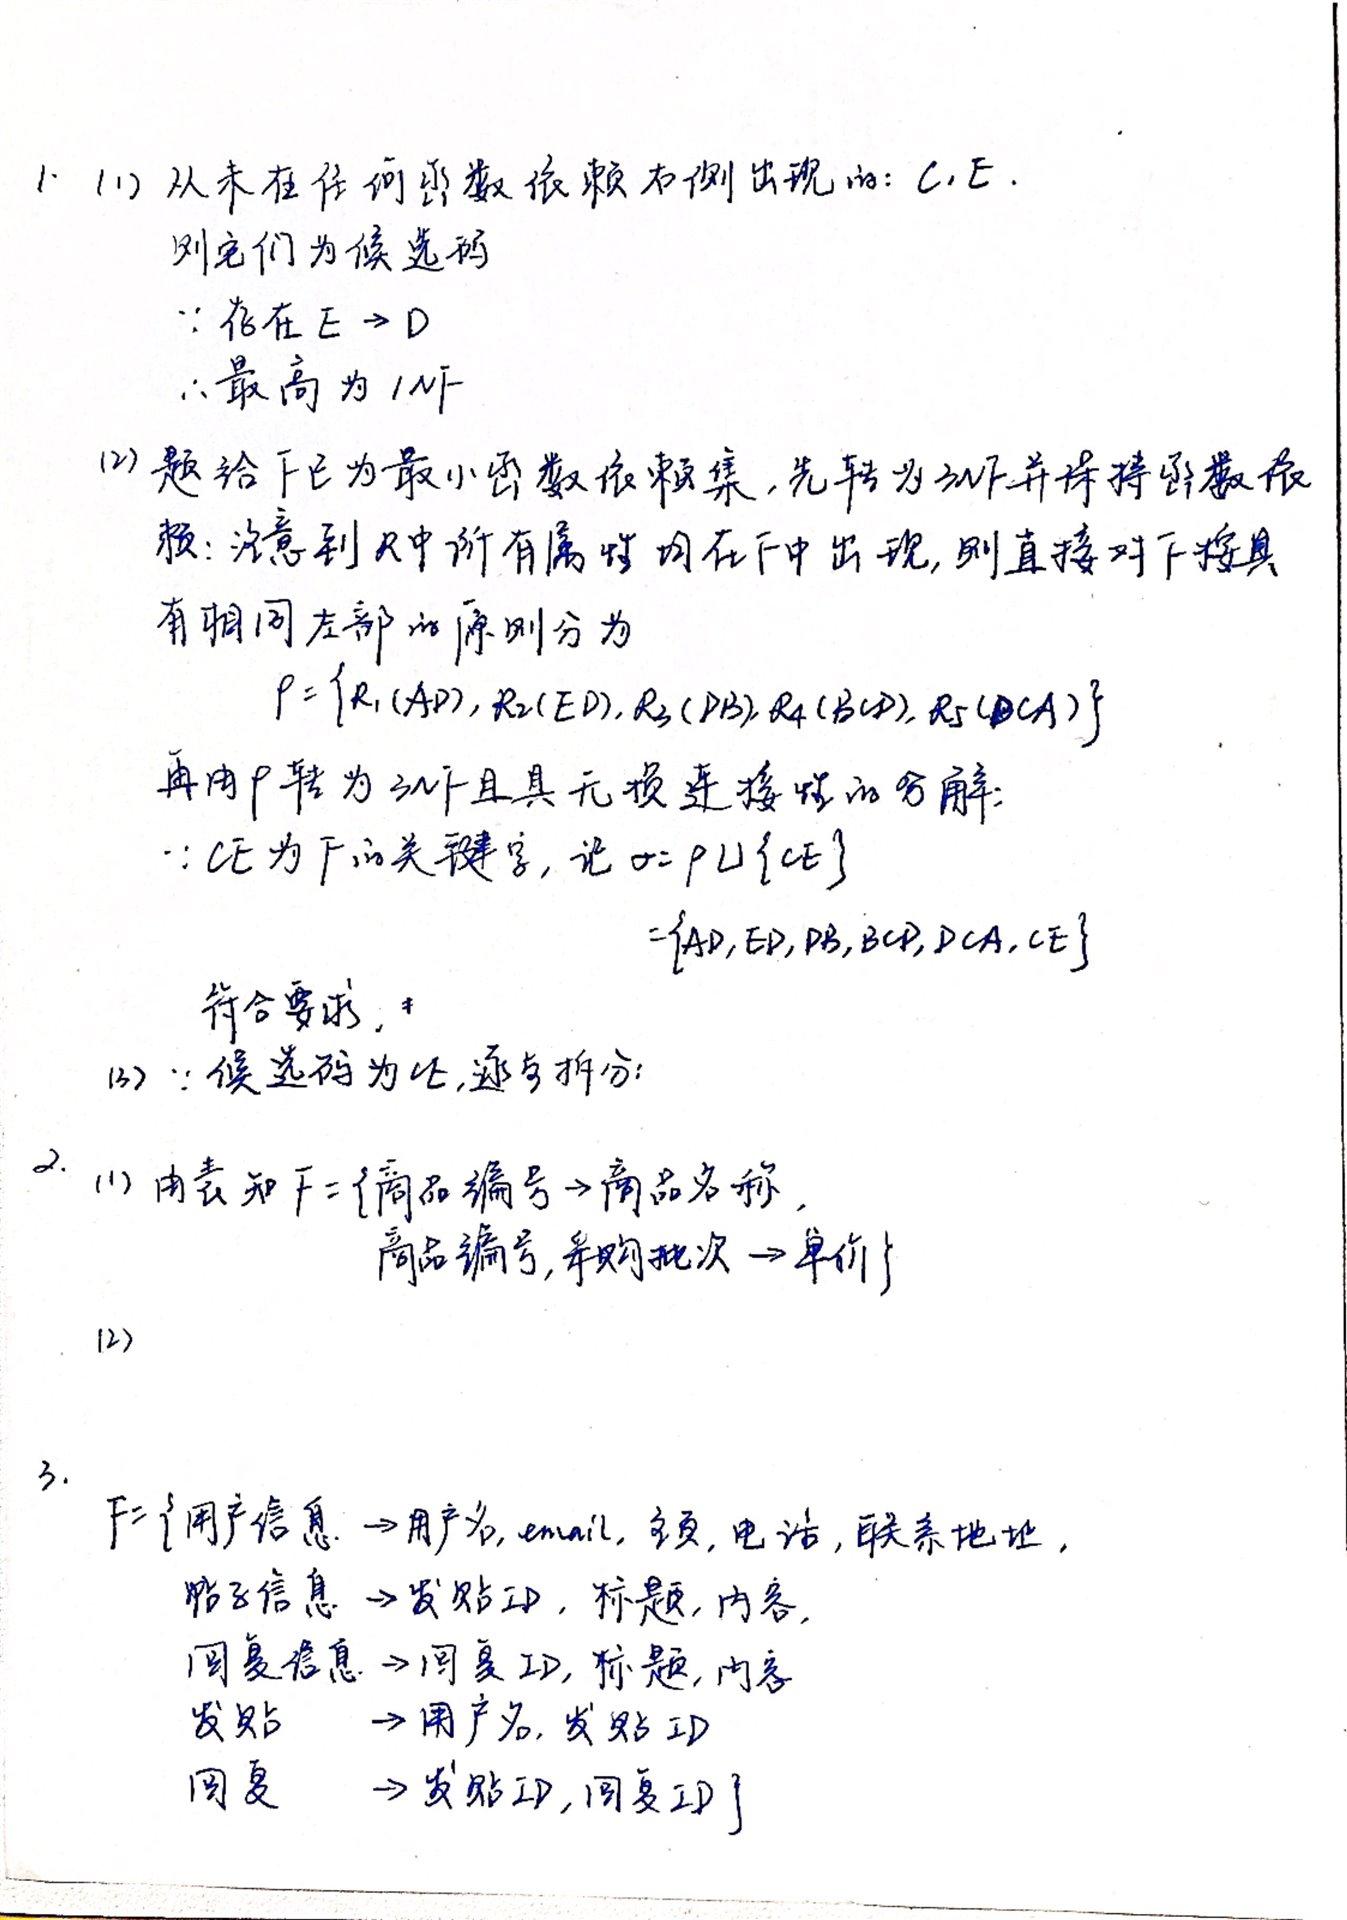 1. (1) 从未在任何函数依赖右侧出现的: C, E.
则它们为候选码
∵ 存在 E → D
∴ 最高为 1NF
(2) 题给 F 已为最小函数依赖集, 先转为 3NF 并保持函数依
赖: 注意到 R中所有属性均在F中出现, 则直接对F按具
有相同左部的原则分为
ρ = {R1(AD), R2(ED), R3(DB), R4(BCD), R5(DCA)}
再由ρ转为3NF且具无损连接性的分解:
∵ CE为F的关键字, 记 σ = ρ ∪ {CE}
= {AD, ED, DB, BCD, DCA, CE}
符合要求.
(3) ∵ 候选码为CE, 逐步拆分:
2. (1) 由表知 F = {商品编号 → 商品名称,
商品编号, 采购批次 → 单价}
(2)
3.
F = {用户信息 → 用户名, email, 主页, 电话, 联系地址,
帖子信息 → 发贴ID, 标题, 内容,
回复信息 → 回复ID, 标题, 内容
发贴 → 用户名, 发贴ID
回复 → 发贴ID, 回复ID}